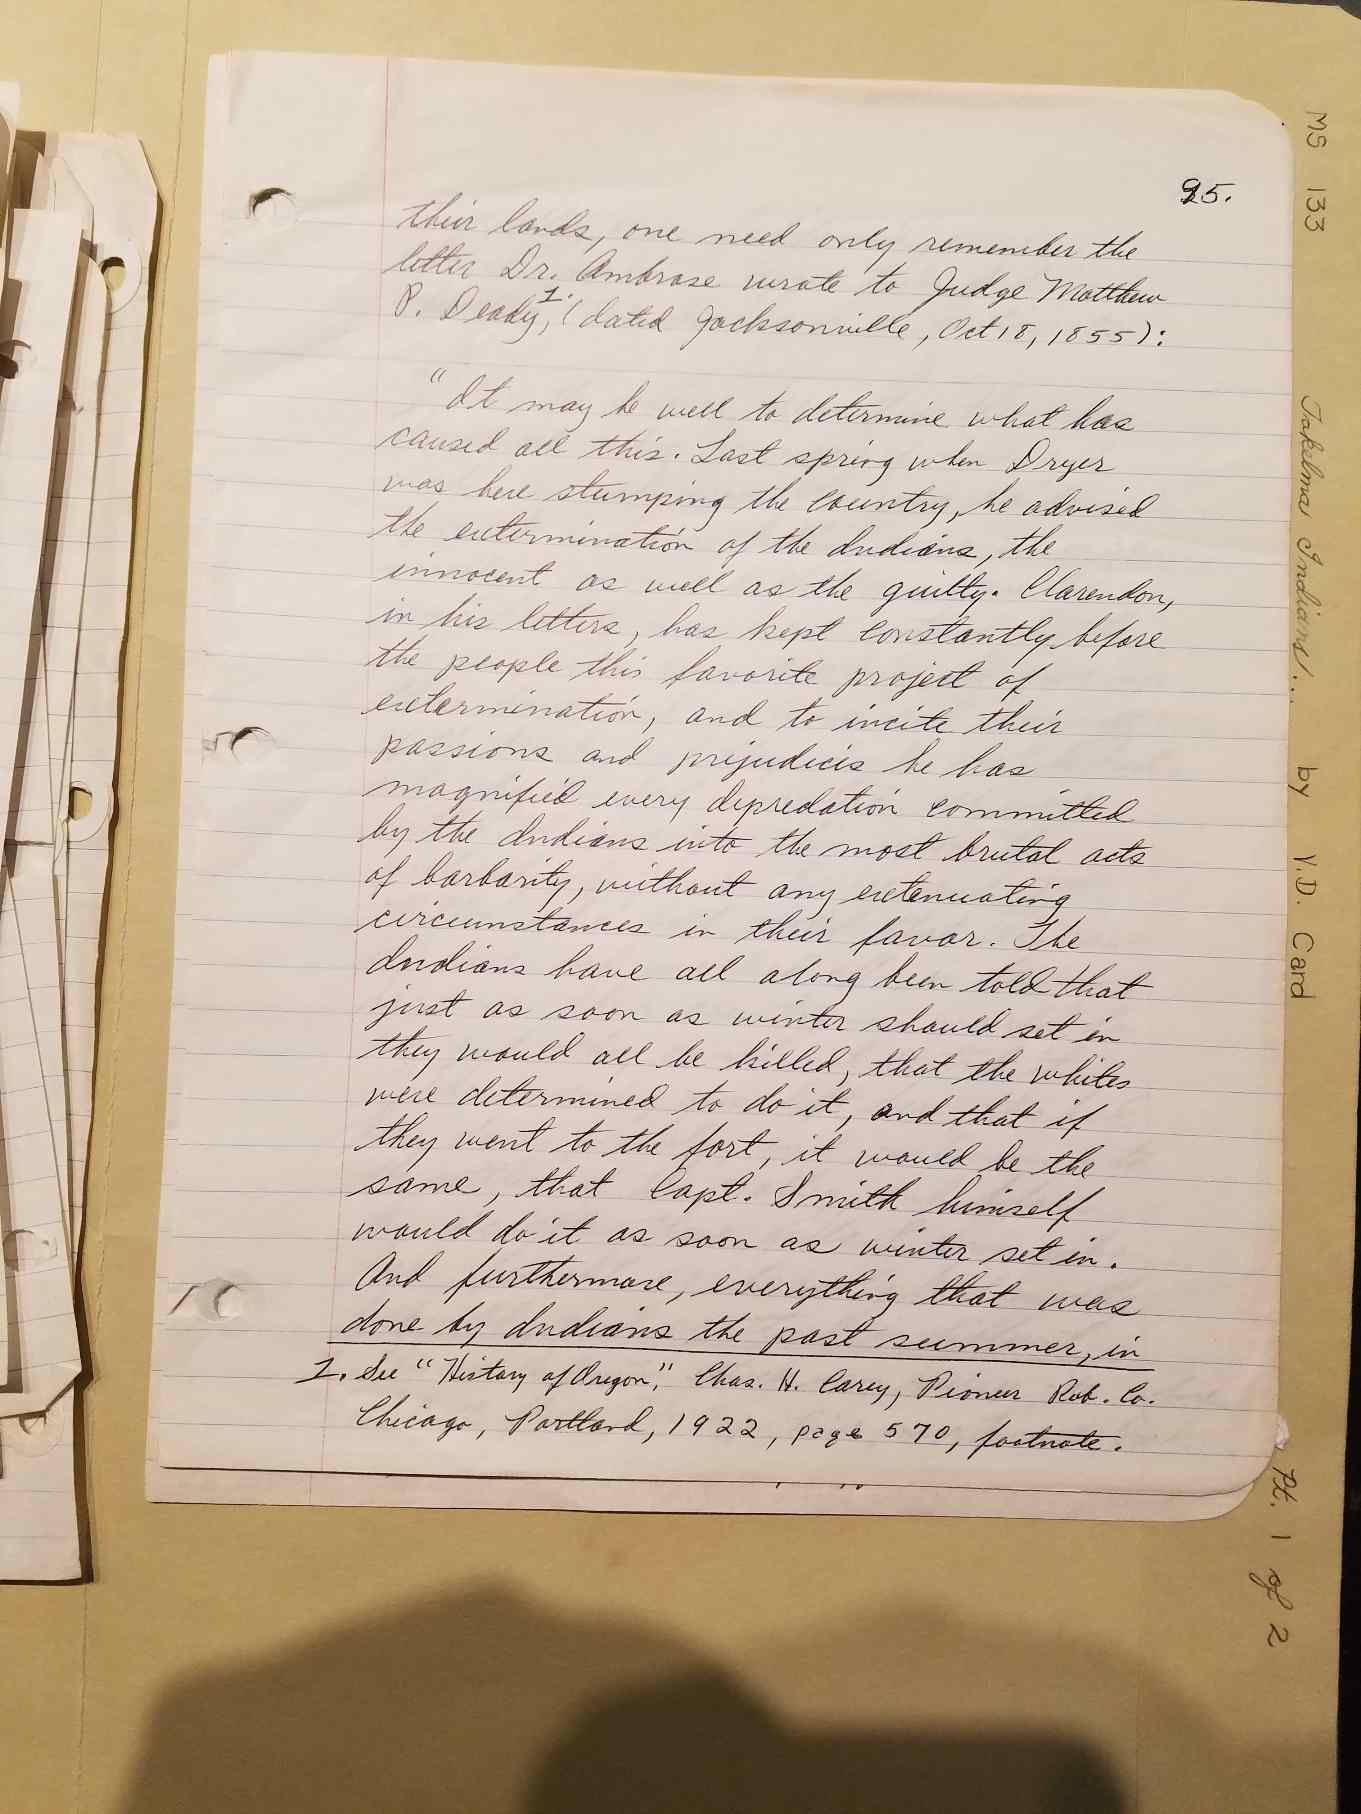 95.
their lands, one need only remember the
letter Dr. Ambrose wrote to Judge Matthew
P. Deady,1. (dated Jacksonville, Oct 18, 1855):
"It may be well to determine what has
caused all this. Last spring when Dryer
was here stumping the country, he advised
the extermination of the Indians, the
innocent as well as the guilty. Clarendon,
in his letters, has kept constantly before
the people this favorite project of
extermination, and to incite their
passions and prejudices he has
magnified every depredation committed
by the Indians into the most brutal acts
of barbarity, without any extenuating
circumstances in their favor. The
Indians have all along been told that
just as soon as winter should set in
they would all be killed, that the whites
were determined to do it, and that if
they went to the fort, it would be the
same, that Capt. Smith himself
would do it as soon as winter set in.
And furthermore, everything that was
done by Indians the past summer, in
1. See "History of Oregon", Chas. H. Carey, Pioneer Pub. Co.
Chicago, Portland, 1922, page 570, footnote.
MS 133 Takelma Indians!... by V.D. Card Pt. 1 of 2